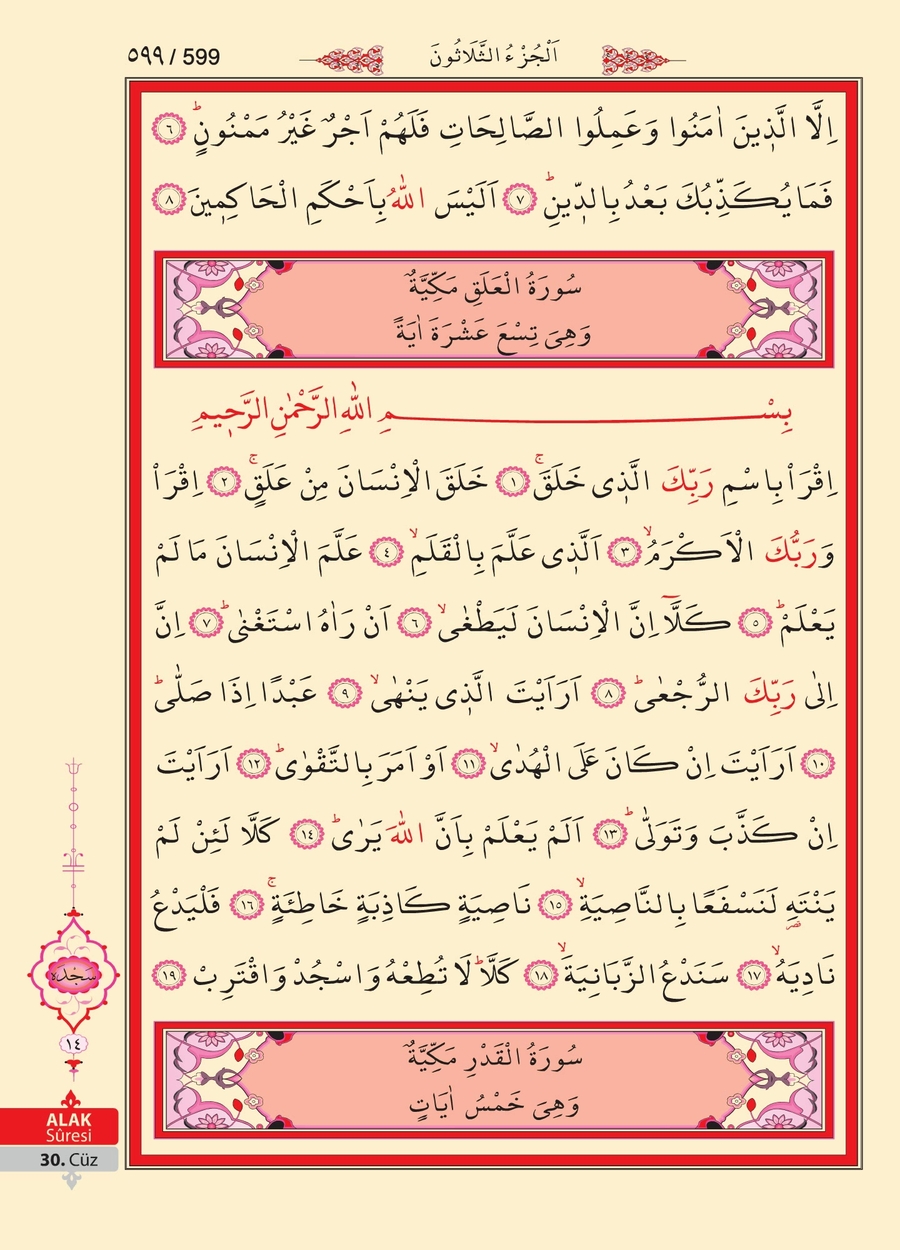 ٥٩٩ / 599
اَلْجُزْءُ الثَّلَاثُونَ
اِلَّا الَّذ۪ينَ اٰمَنُوا وَعَمِلُوا الصَّالِحَاتِ فَلَهُمْ اَجْرٌ غَيْرُ مَمْنُونٍۜ ﴿٦﴾
فَمَا يُكَذِّبُكَ بَعْدُ بِالدّ۪ينِۜ ﴿٧﴾ اَلَيْسَ اللّٰهُ بِاَحْكَمِ الْحَاكِم۪ينَ ﴿٨﴾
سُورَةُ الْعَلَقِ مَكِّيَّةٌ
وَهِىَ تِسْعَ عَشْرَةَ اٰيَةً
بِسْمِ اللّٰهِ الرَّحْمٰنِ الرَّح۪يمِ
اِقْرَأْ بِاسْمِ رَبِّكَ الَّذ۪ى خَلَقَۚ ﴿١﴾ خَلَقَ الْاِنْسَانَ مِنْ عَلَقٍۚ ﴿٢﴾ اِقْرَأْ
وَرَبُّكَ الْاَكْرَمُۙ ﴿٣﴾ اَلَّذ۪ى عَلَّمَ بِالْقَلَمِۙ ﴿٤﴾ عَلَّمَ الْاِنْسَانَ مَا لَمْ
يَعْلَمْۜ ﴿٥﴾ كَلَّٓا اِنَّ الْاِنْسَانَ لَيَطْغٰىۙ ﴿٦﴾ اَنْ رَاٰهُ اسْتَغْنٰىۜ ﴿٧﴾ اِنَّ
اِلٰى رَبِّكَ الرُّجْعٰىۜ ﴿٨﴾ اَرَاَيْتَ الَّذ۪ى يَنْهٰىۙ ﴿٩﴾ عَبْدًا اِذَا صَلّٰىۜ
﴿١٠﴾ اَرَاَيْتَ اِنْ كَانَ عَلَى الْهُدٰىۙ ﴿١١﴾ اَوْ اَمَرَ بِالتَّقْوٰىۜ ﴿١٢﴾ اَرَاَيْتَ
اِنْ كَذَّبَ وَتَوَلّٰىۜ ﴿١٣﴾ اَلَمْ يَعْلَمْ بِاَنَّ اللّٰهَ يَرٰىۜ ﴿١٤﴾ كَلَّا لَئِنْ لَمْ
يَنْتَهِ لَنَسْفَعًا بِالنَّاصِيَةِۙ ﴿١٥﴾ نَاصِيَةٍ كَاذِبَةٍ خَاطِئَةٍۚ ﴿١٦﴾ فَلْيَدْعُ
نَادِيَهُۙ ﴿١٧﴾ سَنَدْعُ الزَّبَانِيَةَۙ ﴿١٨﴾ كَلَّاۜ لَا تُطِعْهُ وَاسْجُدْ وَاقْتَرِبْ ﴿١٩﴾
سُورَةُ الْقَدْرِ مَكِّيَّةٌ
وَهِىَ خَمْسُ اٰيَاتٍ
سَجْدَه
١٤
ALAK
Sûresi
30. Cüz